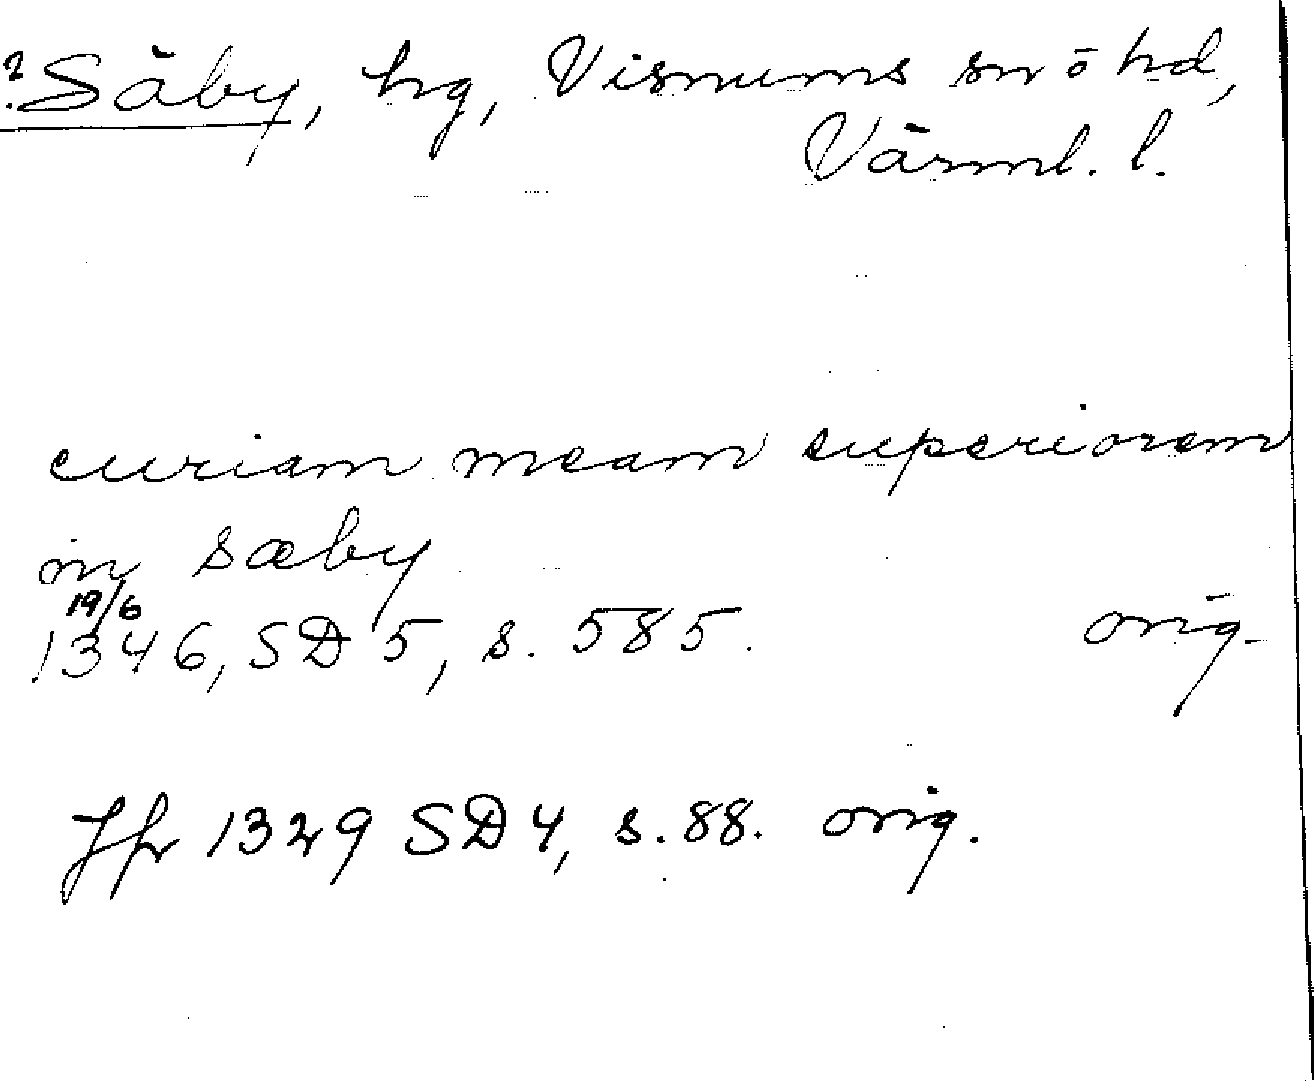 ? Säby, hg, Visnums sn ö hd,
Värml. l.
curiam meam superiorem
in sæby
19/6
1346, SD 5, s. 585. orig.
Jfr 1329 SD 4, s. 88. orig.